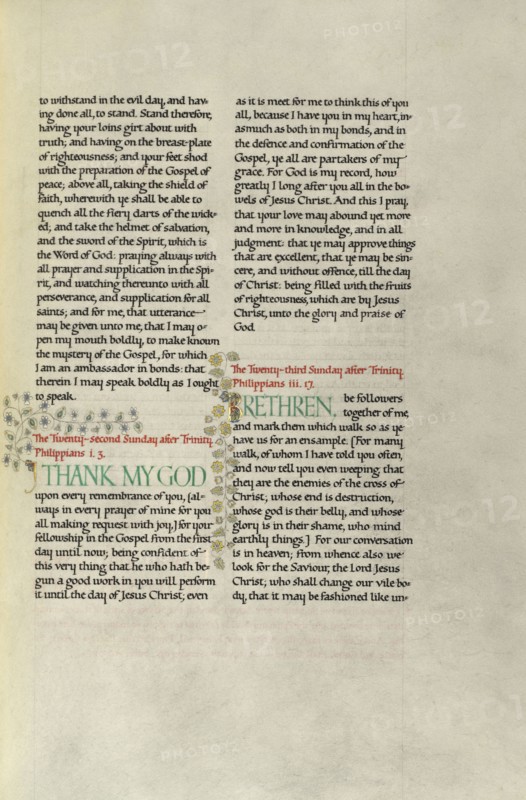 to withstand in the evil day, and hav-
ing done all, to stand. Stand therefore,
having your loins girt about with
truth; and having on the breast-plate
of righteousness; and your feet shod
with the preparation of the Gospel of
peace; above all, taking the shield of
faith, wherewith ye shall be able to
quench all the fiery darts of the wick-
ed; and take the helmet of salvation,
and the sword of the Spirit, which is
the Word of God: praying always with
all prayer and supplication in the Spi-
rit, and watching thereunto with all
perseverance, and supplication for all
saints; and for me, that utterance
may be given unto me, that I may o-
pen my mouth boldly, to make known
the mystery of the Gospel, for which
I am an ambassador in bonds: that
therein I may speak boldly as I ought
to speak.
The Twenty-second Sunday after Trinity
Philippians i. 3.
I THANK MY GOD
upon every remembrance of you, (al-
ways in every prayer of mine for you
all making request with joy,) for your
fellowship in the Gospel from the first
day until now; being confident of
this very thing that he who hath be-
gun a good work in you will perform
it until the day of Jesus Christ; even
as it is meet for me to think this of you
all, because I have you in my heart, in-
asmuch as both in my bonds, and in
the defence and confirmation of the
Gospel, ye all are partakers of my
grace. For God is my record, how
greatly I long after you all in the bo-
wels of Jesus Christ. And this I pray,
that your love may abound yet more
and more in knowledge, and in all
judgment: that ye may approve things
that are excellent, that ye may be sin-
cere, and without offence, till the day
of Christ: being filled with the fruits
of righteousness, which are by Jesus
Christ, unto the glory and praise of
God.
The Twenty-third Sunday after Trinity.
Philippians iii. 17.
BRETHREN, be followers
together of me,
and mark them which walk so as ye
have us for an ensample. (For many
walk, of whom I have told you often,
and now tell you even weeping that
they are the enemies of the cross of
Christ; whose end is destruction,
whose god is their belly, and whose
glory is in their shame, who mind
earthly things.) For our conversation
is in heaven; from whence also we
look for the Saviour, the Lord Jesus
Christ; who shall change our vile bo-
dy, that it may be fashioned like un-
PHOTO12